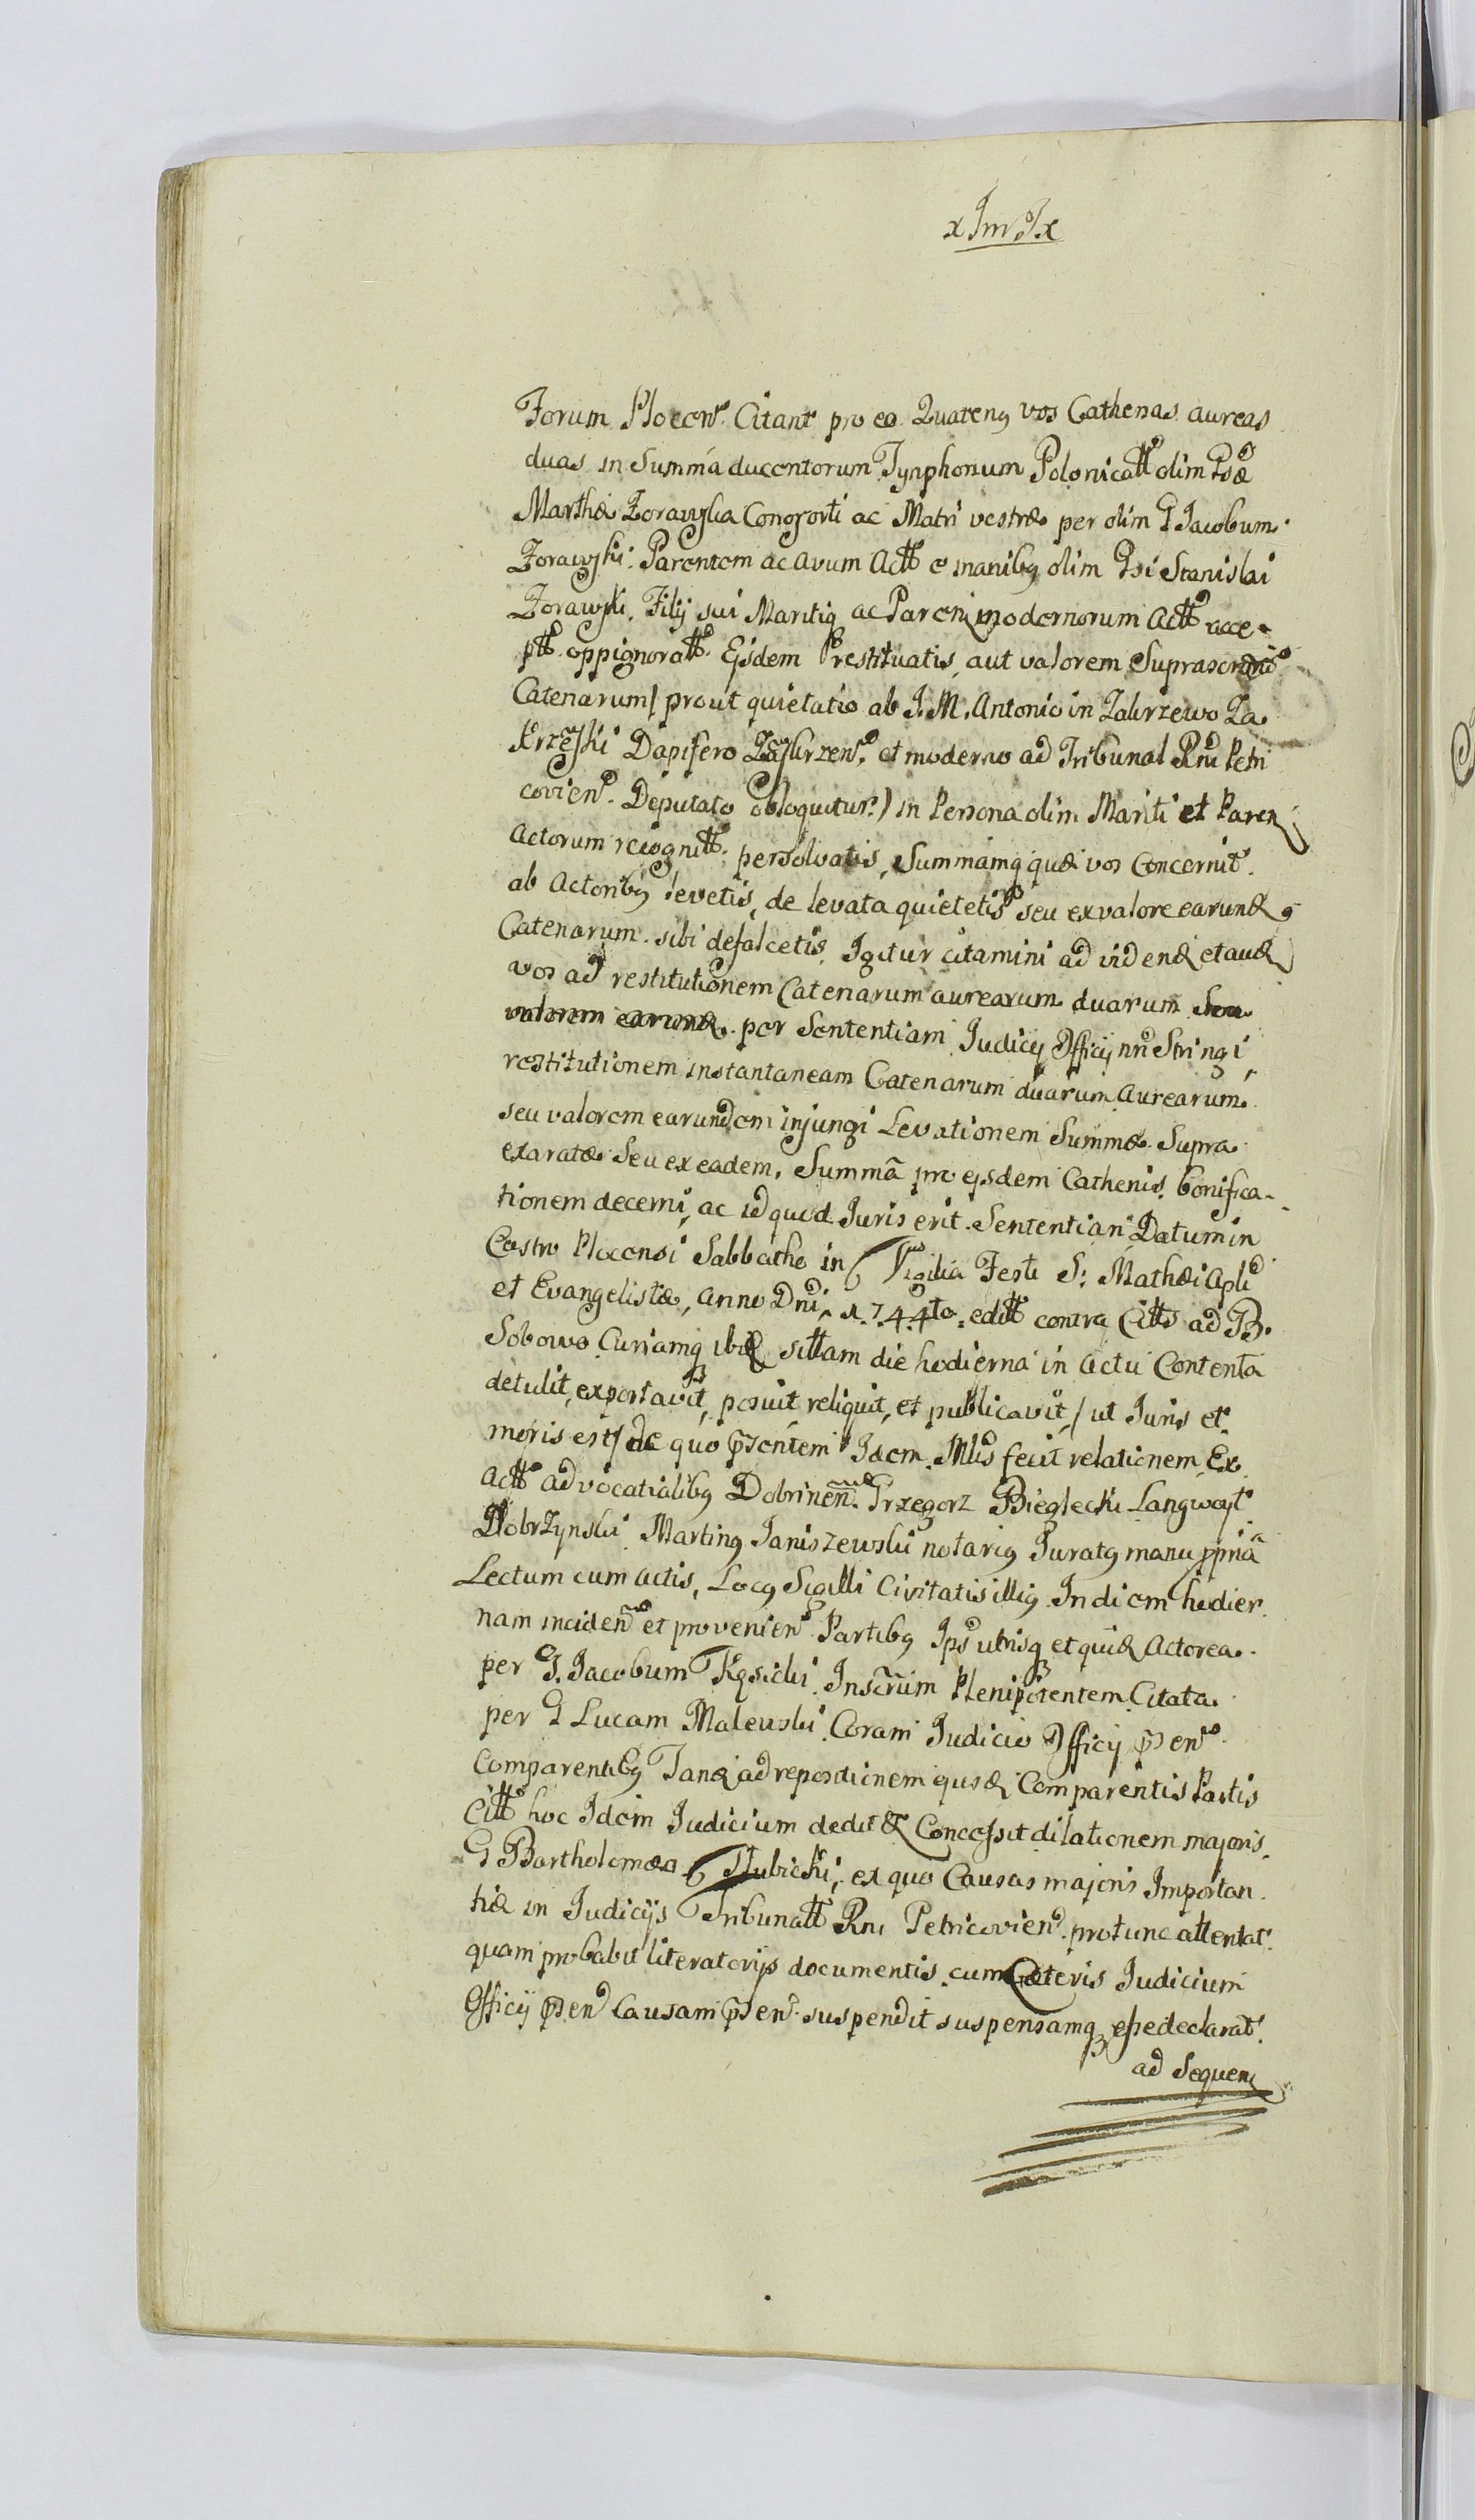 x Jm Jx
Forum Plocen. Citant pro eo Quatenq vos Cathenas aureas
duas in Summa ducentorum Tynphonum Polonicatt olim Gsæ
Marthæ Zorawska Consorti ac Matri vestræ per olim G Jacobum
Zorawski. Parentem ac avum Actt e manibq olim Gsi Stanislai
Zorawski. Filij sui Maritiq ac Paren modernorum Actt acce-
ptt oppignoratt Ejsdem restituatis, aut valorem Suprascrip
Catenarum / prout quietatio ab J. M. Antonio in Zakrzewo Za
krzeski Dapifero Zaskrzen. et moderno ad Tribunal Rni Petri
covien. Deputato obloquitur) in Persona olim Mariti et Paren
Actorum recognitt. persolvatis, Summamq quæ vos Concernit.
ab Actoribq levetis, de levata quietetis seu ex valore earund
Catenarum sibi defalcetis. Igitur citamini ad vidend et aud
vos ad restitutionem Catenarum aurearum duarum Seu
valorem earund. per Sententiam Judicij Officij nri Stringi,
restitutionem instantaneam Catenarum duarum Aurearum.
seu valorem earundem injungi Levationem Summæ Supra
exaratæ Seu ex eadem, Summã pro ejsdem Cathenis bonifica-
tionem decerni, ac id quod Juris erit Sententiari Datum in
Castro Plocensi Sabbatho in Vigilia Festi S: Mathæi Apli
et Evangelistæ, Anno Dni, 1744to. editt contra Citts ad B.
Sobowo Curiamq ibid sittam die hodierna in actu Contenta
detulit, exportavit, posuit reliquit, et publicavit, / ut Juris et
moris est / de quo psentem Idem Mlis fecit relationem. Ex
Actt advocatialibq Dobrinen. Grzegorz Bieglecki Langwoyt
Dobrzynski Martinq Janiszewski notariq Juratq manu ppria
Lectum cum actis, Locq Sigilli Civitatis illiq. In diem hodier
nam inciden et provenien Partibq Ips utrisq et quid Actorea
per G. Jacobum Insrum Plenipotentem Citata
per G Lucam Malewski Coram Judicio Officij psen
Comparentibq Tand ad repositionem ejusd Comparentis Partis
Citt hoc Idem Judicium dedit & Concessit dilationem majoris
G Bartholomæo Hubicki, ex quo Causas majoris Importan
tiæ in Judicijs Tribunatt Rni Petricovien. protunc attentat
quam probabit literatorijs documentis cum Cæteris Judicium
Officij psen Causam psen. suspendit suspensamq esse declarat
ad Sequen